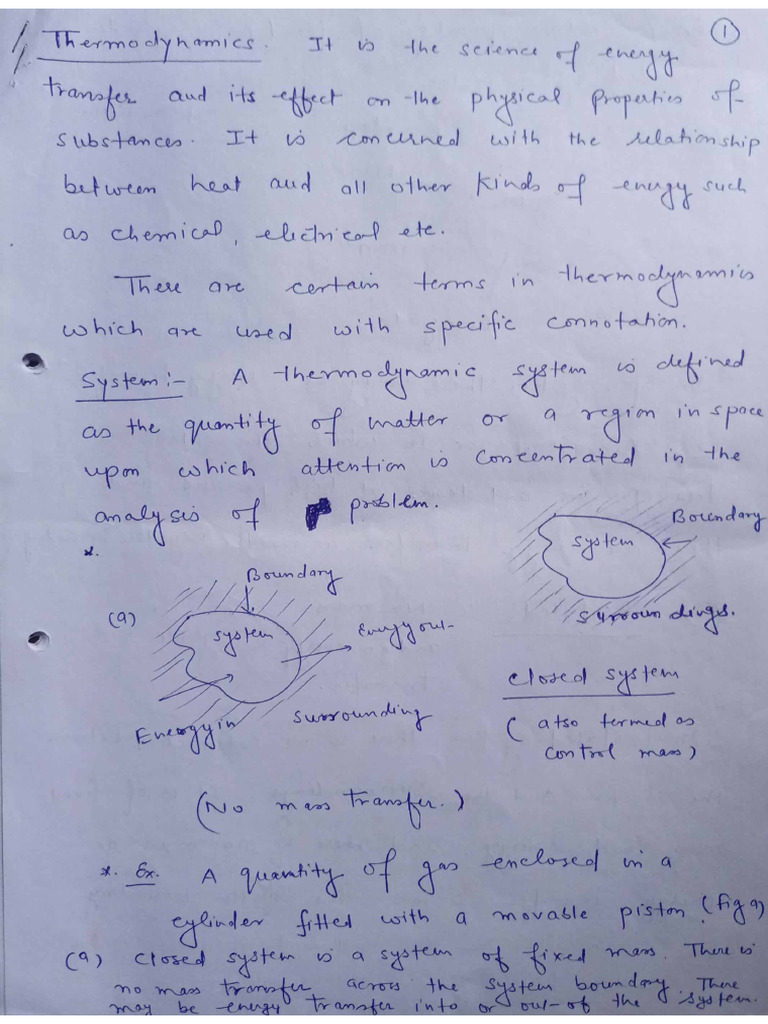 1
Thermodynamics. It is the science of energy
transfer and its effect on the physical properties of
substances. It is concerned with the relationship
between heat and all other kinds of energy such
as chemical, electrical etc.
There are certain terms in thermodynamics
which are used with specific connotation.
System:- A thermodynamic system is defined
as the quantity of matter or a region in space
upon which attention is concentrated in the
analysis of problem.
Boundary
system
Surroundings.
*.
Boundary
(a)
system
Energy out
Energy in
Surrounding
closed system
(also termed as
control mass)
(No mass transfer.)
*. Ex. A quantity of gas enclosed in a
cylinder fitted with a movable piston. (fig a)
(a) closed system is a system of fixed mass. There is
no mass transfer across the system boundary. There
may be energy transfer into or out of the system.